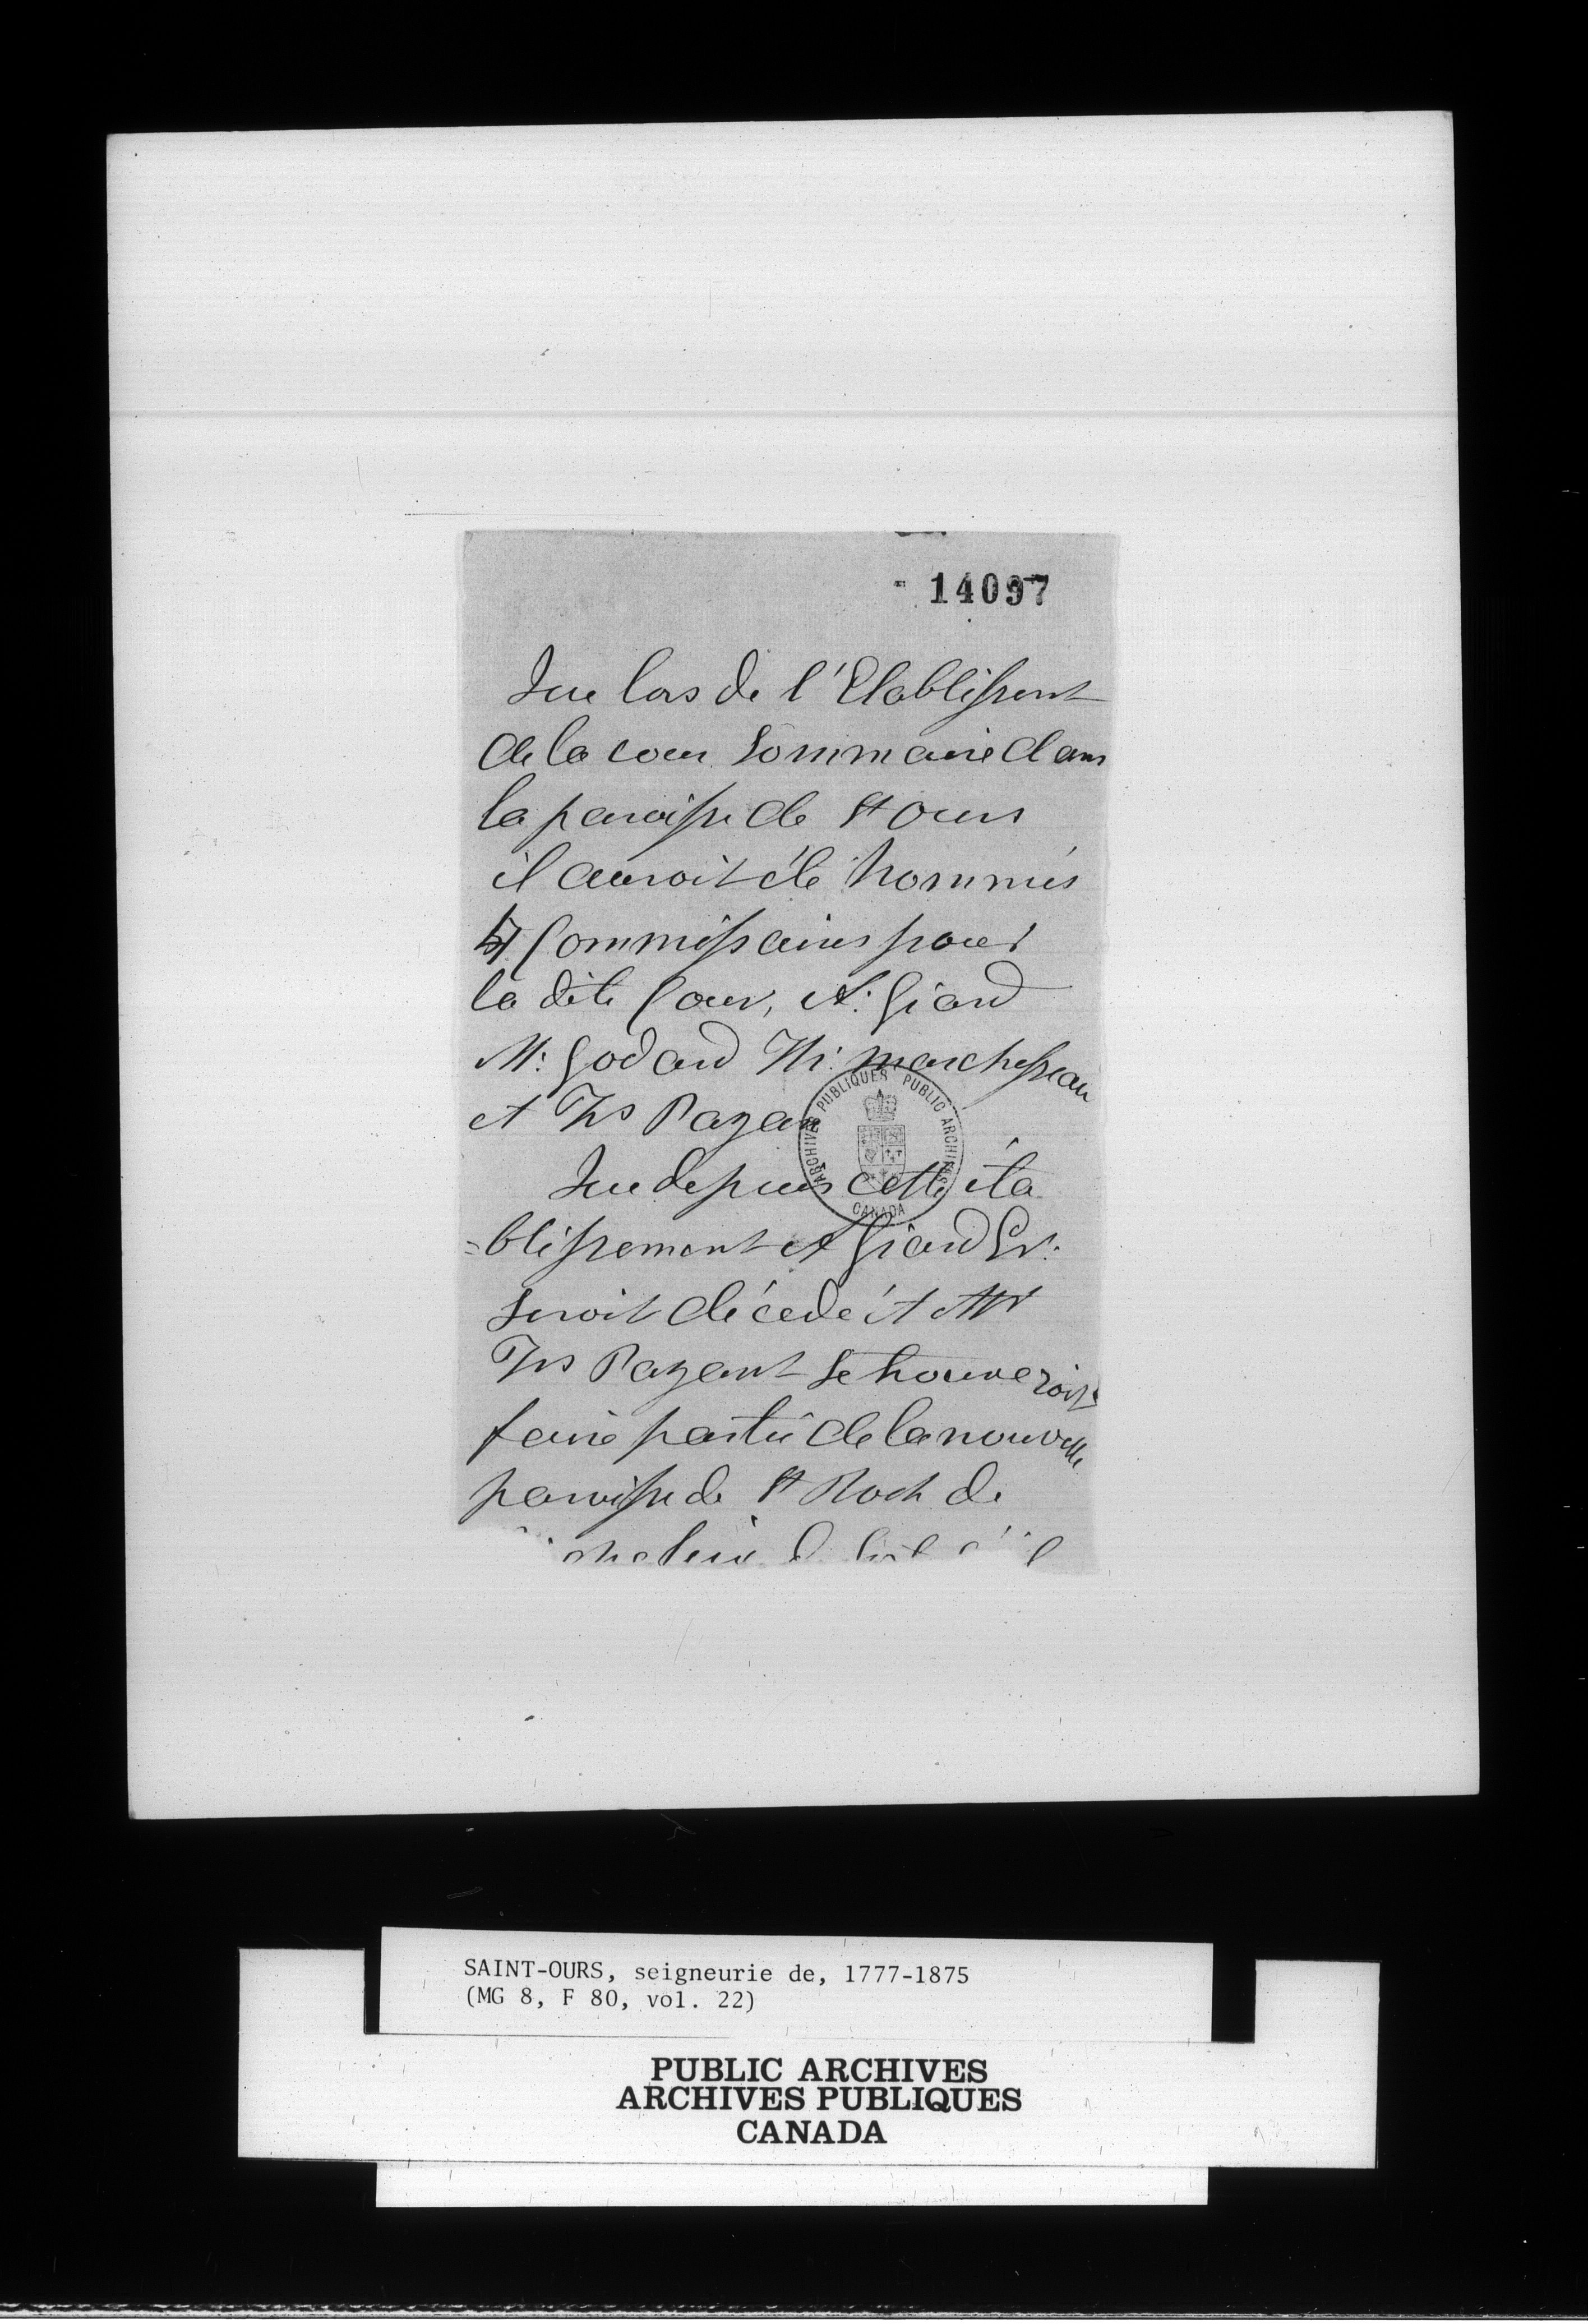 14097
Que lors de l'Etablissent
de la cour Sommaire dans
la paroisse de St Ours
il auroit été Nommés
4 Commissaires pour
la dite Cour, A: Giard
M: Godard Th: Marchesseau
et Frs Payan
ARCHIVES PUBLIQUES PUBLIC ARCHIVES
CANADA
Que depuis cette éta
=blissement A Giard Er:
Seroit décedé et Mr
Frs Payant Se trouveroit
faire partie de la nouvelle
paroisse de St Roch de
SAINT-OURS, seigneurie de, 1777-1875
(MG 8, F 80, vol. 22)
PUBLIC ARCHIVES
ARCHIVES PUBLIQUES
CANADA